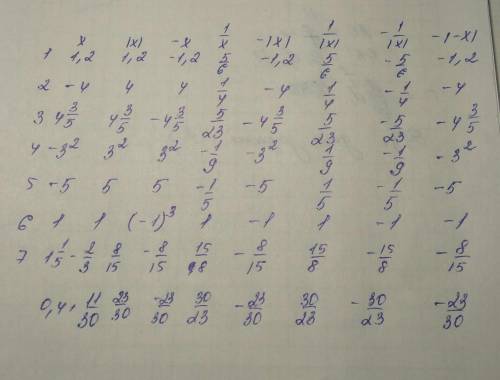 x |x| -x 1/x -|x| 1/|x| -1/|x| -|-x|
1 1,2 1,2 -1,2 5/6 -1,2 5/6 -5/6 -1,2
2 -4 4 4 1/4 -4 1/4 -1/4 -4
3 4 3/5 4 3/5 -4 3/5 5/23 -4 3/5 5/23 -5/23 -4 3/5
4 -3² 3² 3² -1/9 -3² 1/9 -1/9 -3²
5 -5 5 5 -1/5 -5 1/5 -1/5 -5
6 1 1 (-1)³ 1 -1 1 -1 -1
7 1 1/5 - 2/3 8/15 -8/15 15/8 -8/15 15/8 -15/8 -8/15
0,4+ 11/30 23/30 -23/30 30/23 -23/30 30/23 -30/23 -23/30